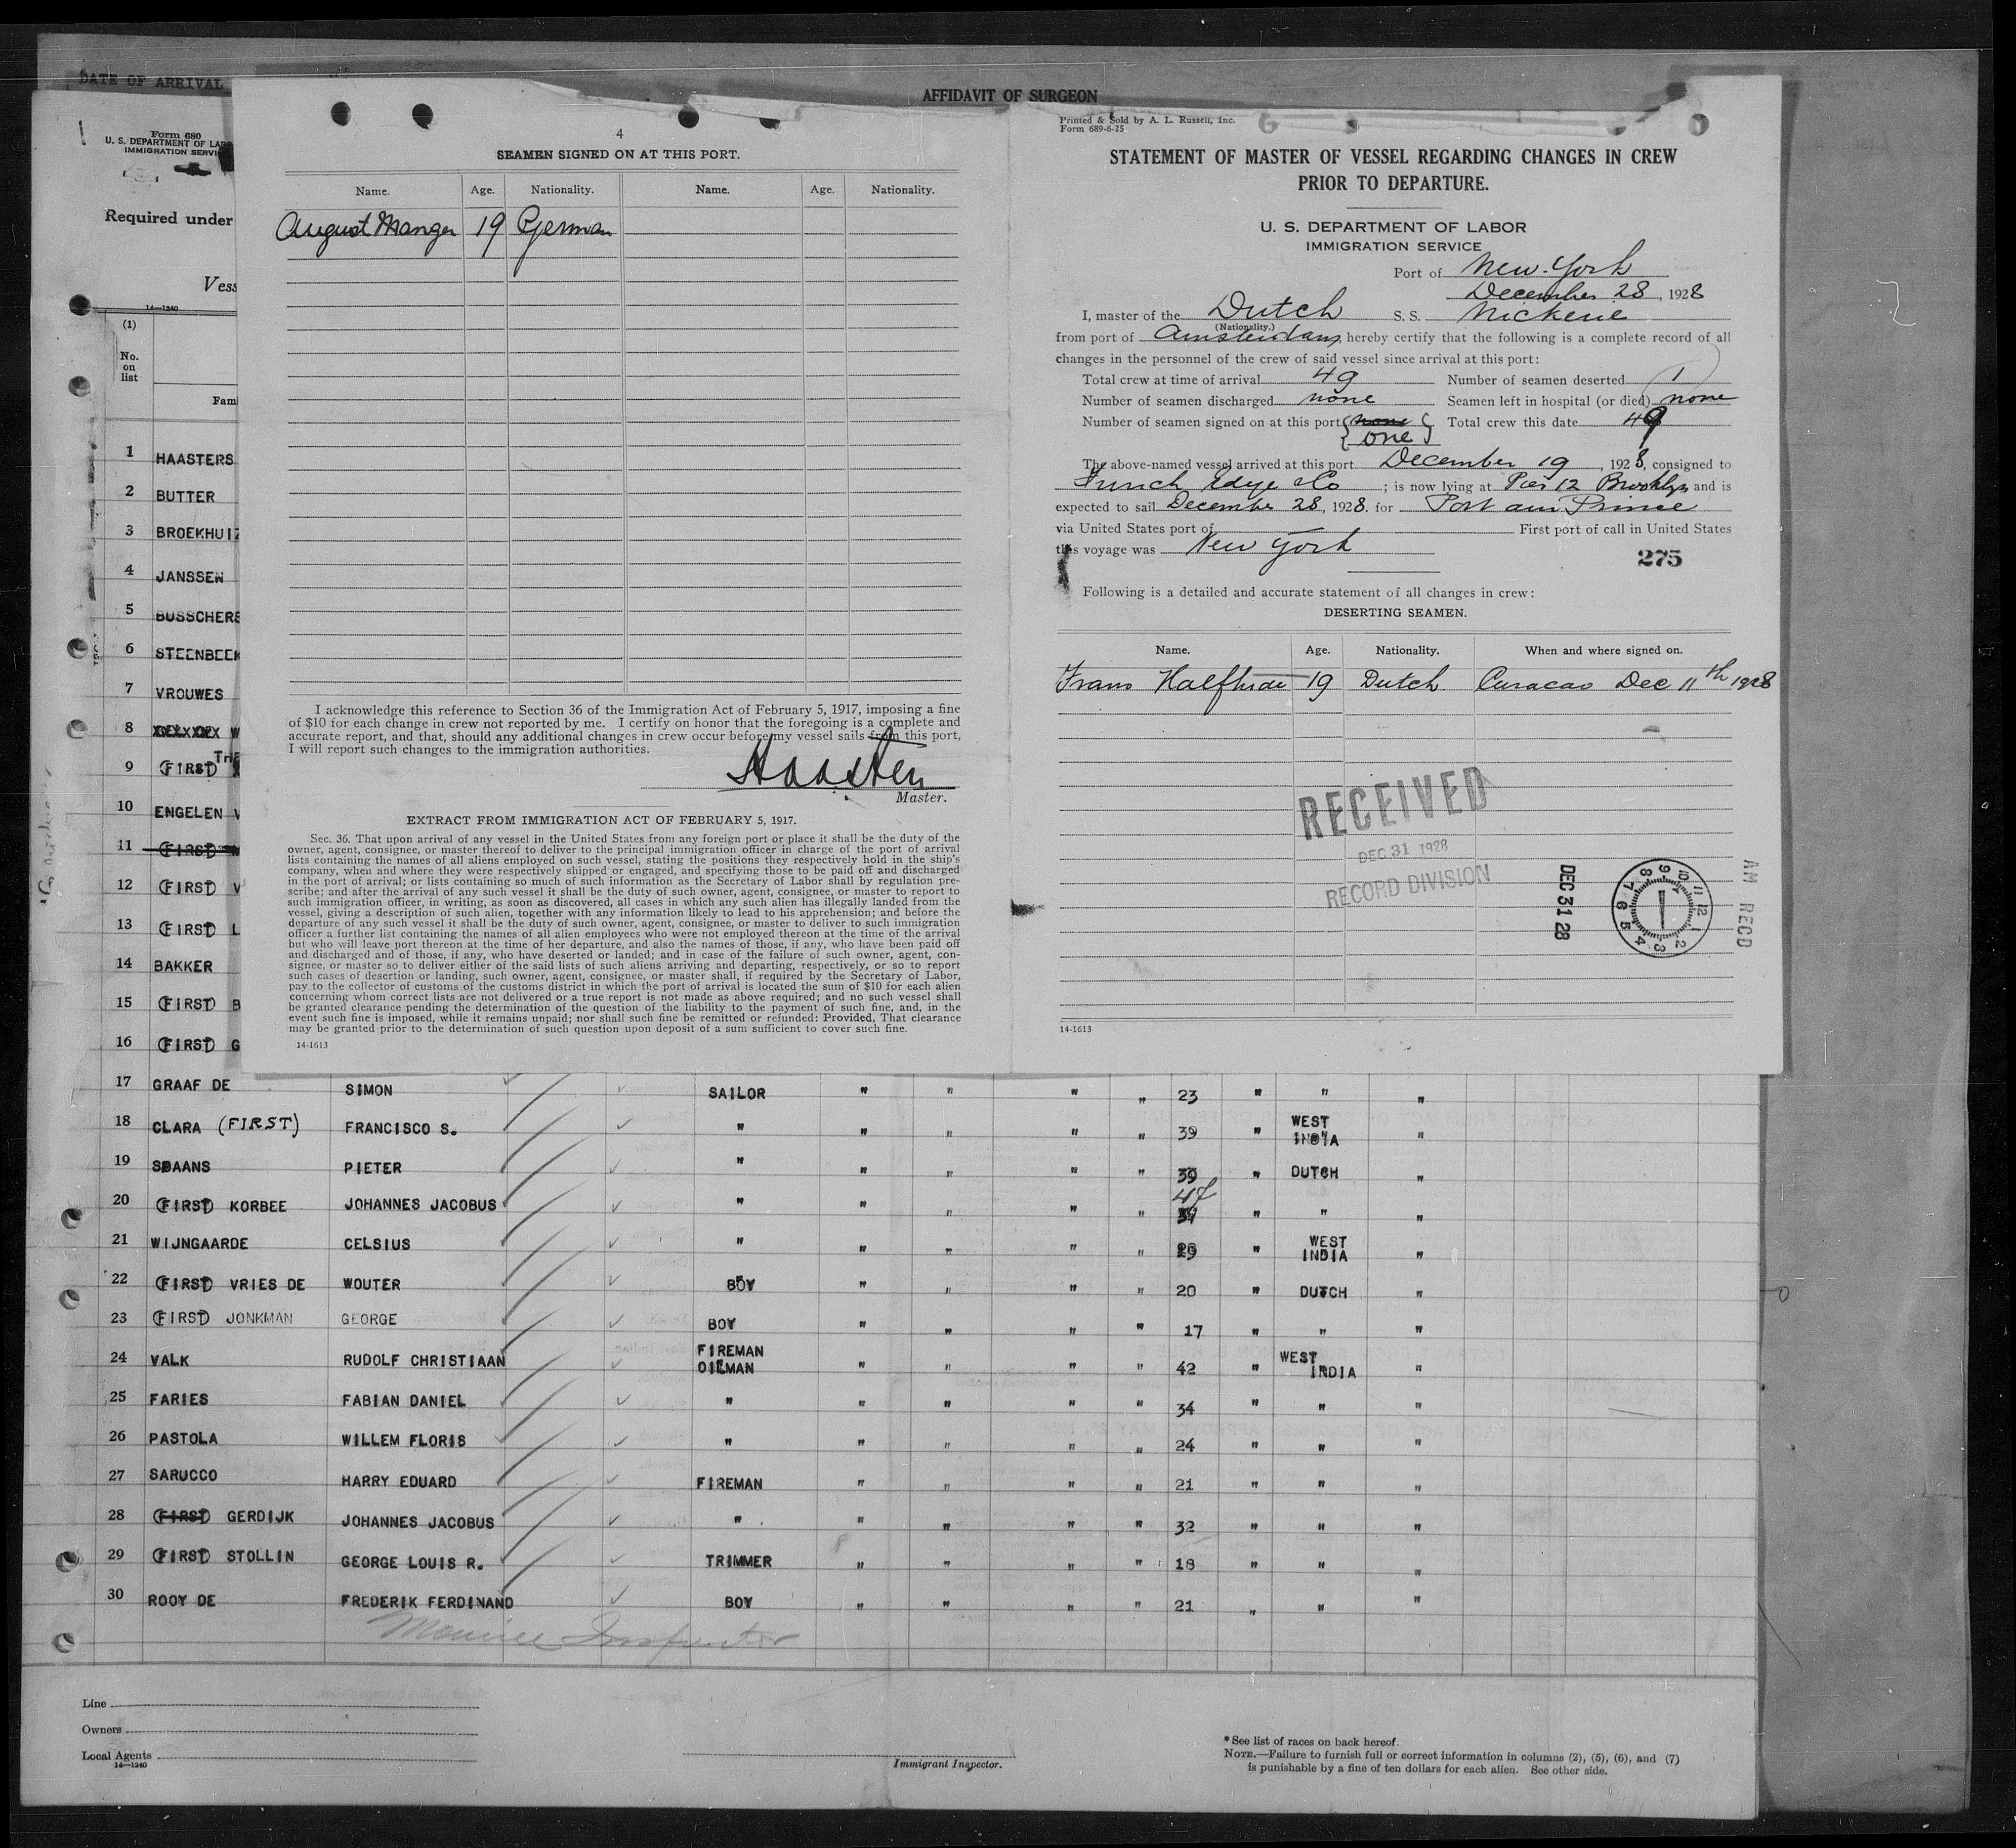 DATE OF ARRIVAL
AFFIDAVIT OF SURGEON
Form 680
U. S. DEPARTMENT OF LAB
IMMIGRATION SERVI
Required under
Vess
14—1240
(1)
No.
on
list
Fami
1 HAASTERS
2 BUTTER
3 BROEKHUIZ
4 JANSSEN
5 BUSSCHERS
6 STEENBEEK
7 VROUWES
8 W
9 (FIRST) THE
10 ENGELEN V
11 (FIRST)
12 (FIRST) V
13 (FIRST) L
14 BAKKER
15 (FIRST) B
16 (FIRST) G
4
SEAMEN SIGNED ON AT THIS PORT.
Name. Age. Nationality. Name. Age. Nationality.
August Manger 19 German
I acknowledge this reference to Section 36 of the Immigration Act of February 5, 1917, imposing a fine
of $10 for each change in crew not reported by me. I certify on honor that the foregoing is a complete and
accurate report, and that, should any additional changes in crew occur before my vessel sails from this port,
I will report such changes to the immigration authorities.
Haasters
Master.
EXTRACT FROM IMMIGRATION ACT OF FEBRUARY 5, 1917.
Sec. 36. That upon arrival of any vessel in the United States from any foreign port or place it shall be the duty of the
owner, agent, consignee, or master thereof to deliver to the principal immigration officer in charge of the port of arrival
lists containing the names of all aliens employed on such vessel, stating the positions they respectively hold in the ship's
company, when and where they were respectively shipped or engaged, and specifying those to be paid off and discharged
in the port of arrival; or lists containing so much of such information as the Secretary of Labor shall by regulation pre-
scribe; and after the arrival of any such vessel it shall be the duty of such owner, agent, consignee, or master to report to
such immigration officer, in writing, as soon as discovered, all cases in which any such alien has illegally landed from the
vessel, giving a description of such alien, together with any information likely to lead to his apprehension; and before the
departure of any such vessel it shall be the duty of such owner, agent, consignee, or master to deliver to such immigration
officer a further list containing the names of all alien employees who were not employed thereon at the time of the arrival
but who will leave port thereon at the time of her departure, and also the names of those, if any, who have been paid off
and discharged and of those, if any, who have deserted or landed; and in case of the failure of such owner, agent, con-
signee, or master so to deliver either of the said lists of such aliens arriving and departing, respectively, or so to report
such cases of desertion or landing, such owner, agent, consignee, or master shall, if required by the Secretary of Labor,
pay to the collector of customs of the customs district in which the port of arrival is located the sum of $10 for each alien
concerning whom correct lists are not delivered or a true report is not made as above required; and no such vessel shall
be granted clearance pending the determination of the question of the liability to the payment of such fine, and, in the
event such fine is imposed, while it remains unpaid; nor shall such fine be remitted or refunded: Provided, That clearance
may be granted prior to the determination of such question upon deposit of a sum sufficient to cover such fine.
14-1613
Printed & Sold by A. L. Russell, Inc.
Form 689-6-25
STATEMENT OF MASTER OF VESSEL REGARDING CHANGES IN CREW
PRIOR TO DEPARTURE.
U. S. DEPARTMENT OF LABOR
IMMIGRATION SERVICE
Port of New-York
December 28, 1928
I, master of the Dutch S. S. Nickerie
(Nationality.)
from port of Amsterdam, hereby certify that the following is a complete record of all
changes in the personnel of the crew of said vessel since arrival at this port:
Total crew at time of arrival 49 Number of seamen deserted 1
Number of seamen discharged none Seamen left in hospital (or died) none
Number of seamen signed on at this port none one Total crew this date 49
The above-named vessel arrived at this port December 19, 1928, consigned to
Funch Edye & Co ; is now lying at Pier 12 Brooklyn and is
expected to sail December 28, 1928. for Port au Prince
via United States port of First port of call in United States
this voyage was New York
275
Following is a detailed and accurate statement of all changes in crew:
DESERTING SEAMEN.
Name. Age. Nationality. When and where signed on.
Frans Halfhide 19 Dutch Curacao Dec 11th 1928
RECEIVED
DEC 31 1928
RECORD DIVISION
DEC 31 28
12 1 2 3 4 5 6 7 8 9 10 11
AM RECD
14-1613
17 GRAAF DE SIMON SAILOR " " " " 23 " " "
18 CLARA (FIRST) FRANCISCO S. " " " " " 39 " WEST INDIA "
19 SPAANS PIETER " " " " " 39 " DUTCH "
20 (FIRST) KORBEE JOHANNES JACOBUS " " " " " 47 " " "
21 WIJNGAARDE CELSIUS " " " " " 29 " WEST INDIA "
22 (FIRST) VRIES DE WOUTER BOY " " " " 20 " DUTCH "
23 (FIRST) JONKMAN GEORGE BOY " " " " 17 " " "
24 VALK RUDOLF CHRISTIAAN FIREMAN OILMAN " " " " 42 " WEST INDIA "
25 FARIES FABIAN DANIEL " " " " " 34 " " "
26 PASTOLA WILLEM FLORIS " " " " " 24 " " "
27 SARUCCO HARRY EDUARD FIREMAN " " " " 21 " " "
28 (FIRST) GERDIJK JOHANNES JACOBUS " " " " " 32 " " "
29 (FIRST) STOLLIN GEORGE LOUIS R. TRIMMER " " " " 18 " " "
30 ROOY DE FREDERIK FERDINAND BOY " " " " 21 " " "
Line
Owners
Local Agents
14—1240
Immigrant Inspector.
*See list of races on back hereof.
NOTE.—Failure to furnish full or correct information in columns (2), (5), (6), and (7)
is punishable by a fine of ten dollars for each alien. See other side.